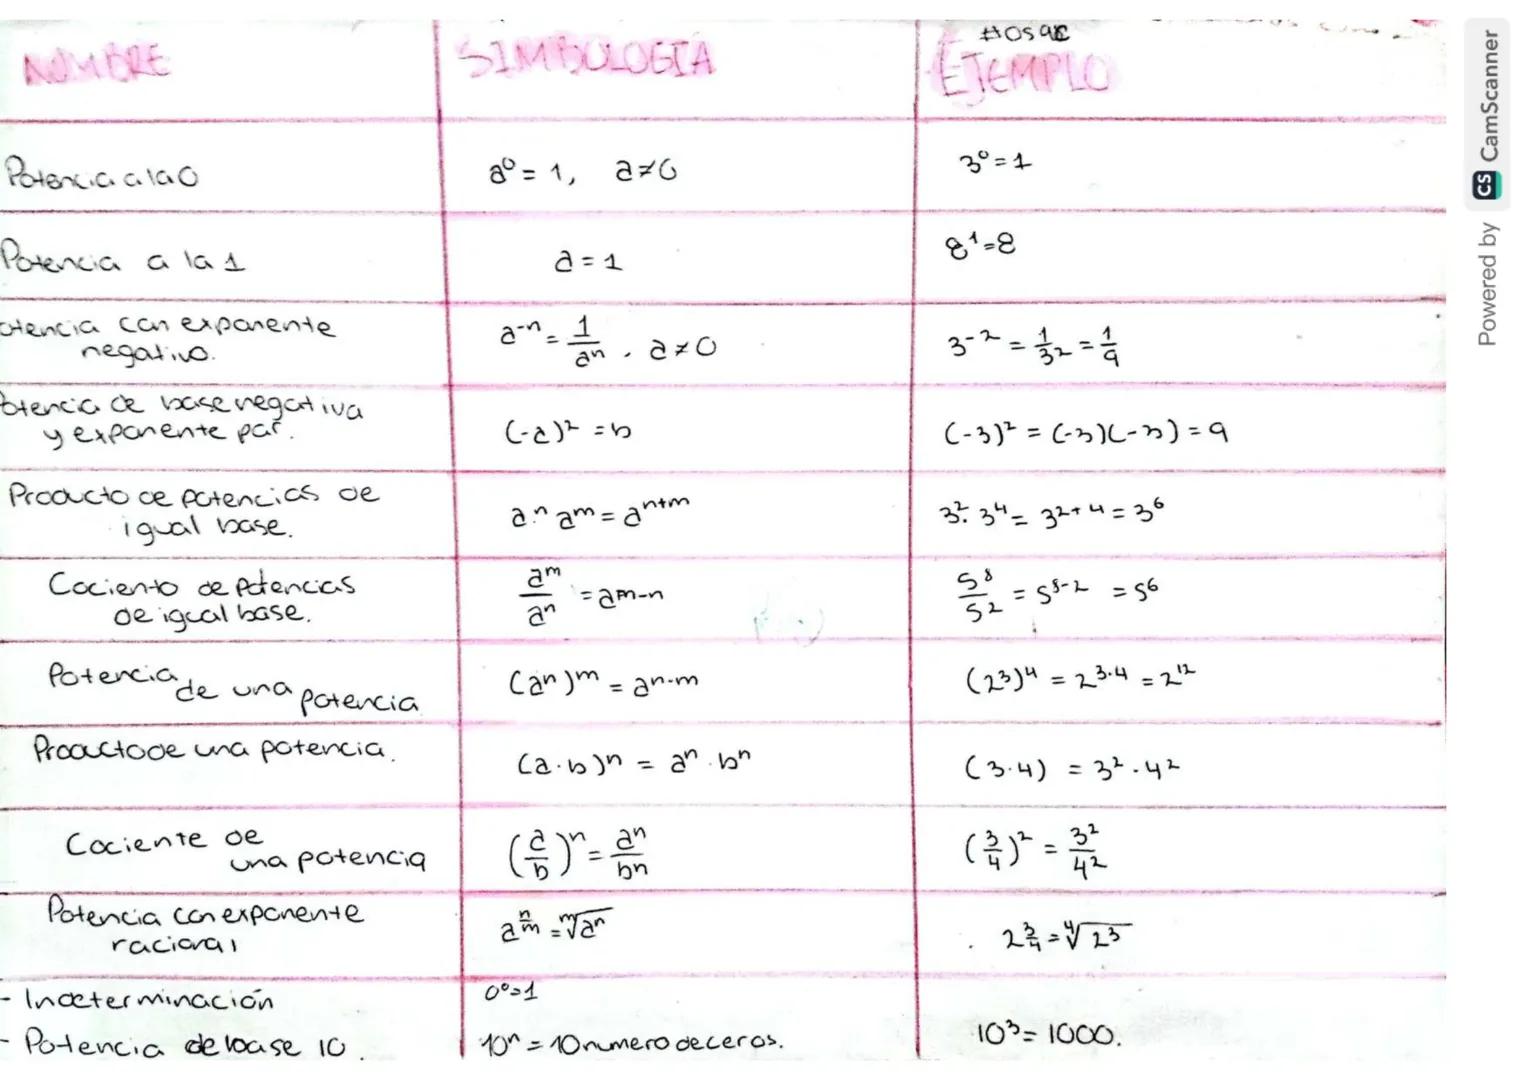 #Osac
NOMBRE SIMBOLOGÍA EJEMPLO
Potencia a la 0 a⁰ = 1, a≠0 3⁰=1
Potencia a la 1 a = 1 8¹=8
otencia con exponente
negativo. a⁻ⁿ = 1/aⁿ . a≠0 3⁻² = 1/3² = 1/9
Potencia de base negativa
y exponente par. (-a)² = b (-3)² = (-3)(-3) = 9
Producto de potencias de
igual base. a.ⁿ aᵐ = aⁿ⁺ᵐ 3². 3⁴ = 3²⁺⁴ = 3⁶
Cociento de potencias
de igual base. aᵐ/aⁿ = aᵐ⁻ⁿ 5⁸/5² = 5⁸⁻² = 5⁶
Potencia de una potencia (aⁿ)ᵐ = aⁿ·ᵐ (2³)⁴ = 2³·⁴ = 2¹²
Producto de una potencia. (a·b)ⁿ = aⁿ · bⁿ (3·4) = 3² · 4²
Cociente de
una potencia (a/b)ⁿ = aⁿ/bⁿ (3/4)² = 3²/4²
Potencia con exponente
racional a^(n/m) = ᵐ√aⁿ 2^(3/4) = ⁴√2³
- Indeterminación 0⁰=1
- Potencia de base 10. 10ⁿ = 10 numero de ceros. 10³ = 1000.
Powered by CS CamScanner